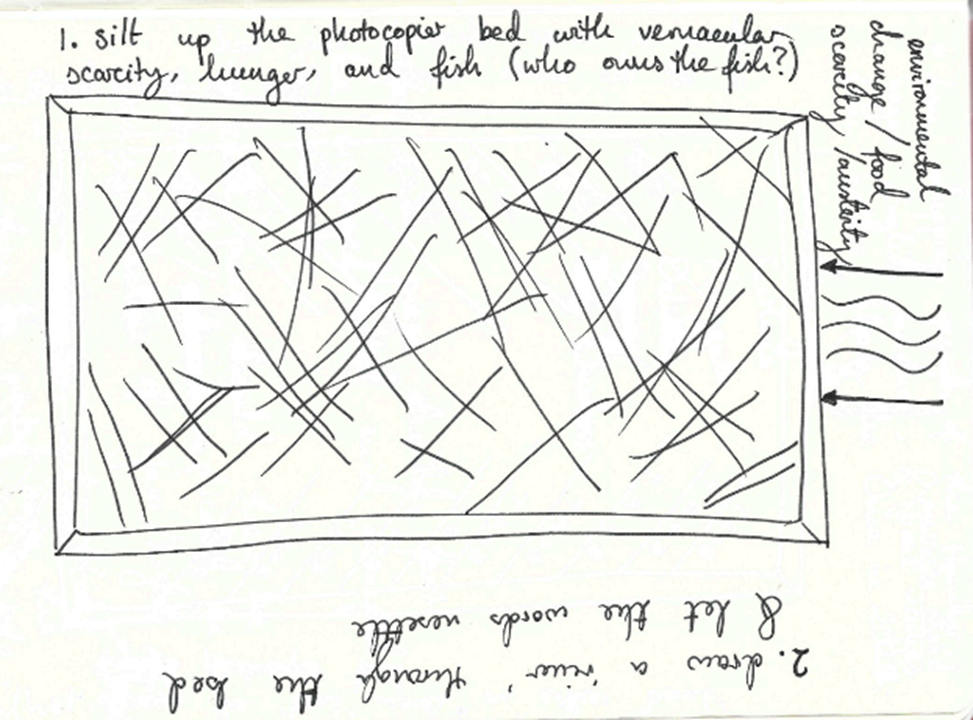 1. silt up the photocopier bed with vernacular
scarcity, hunger, and fish (who owns the fish?)
environmental
change / food
scarcity / austerity
2. draw a 'river' through the bed
& let the words resettle